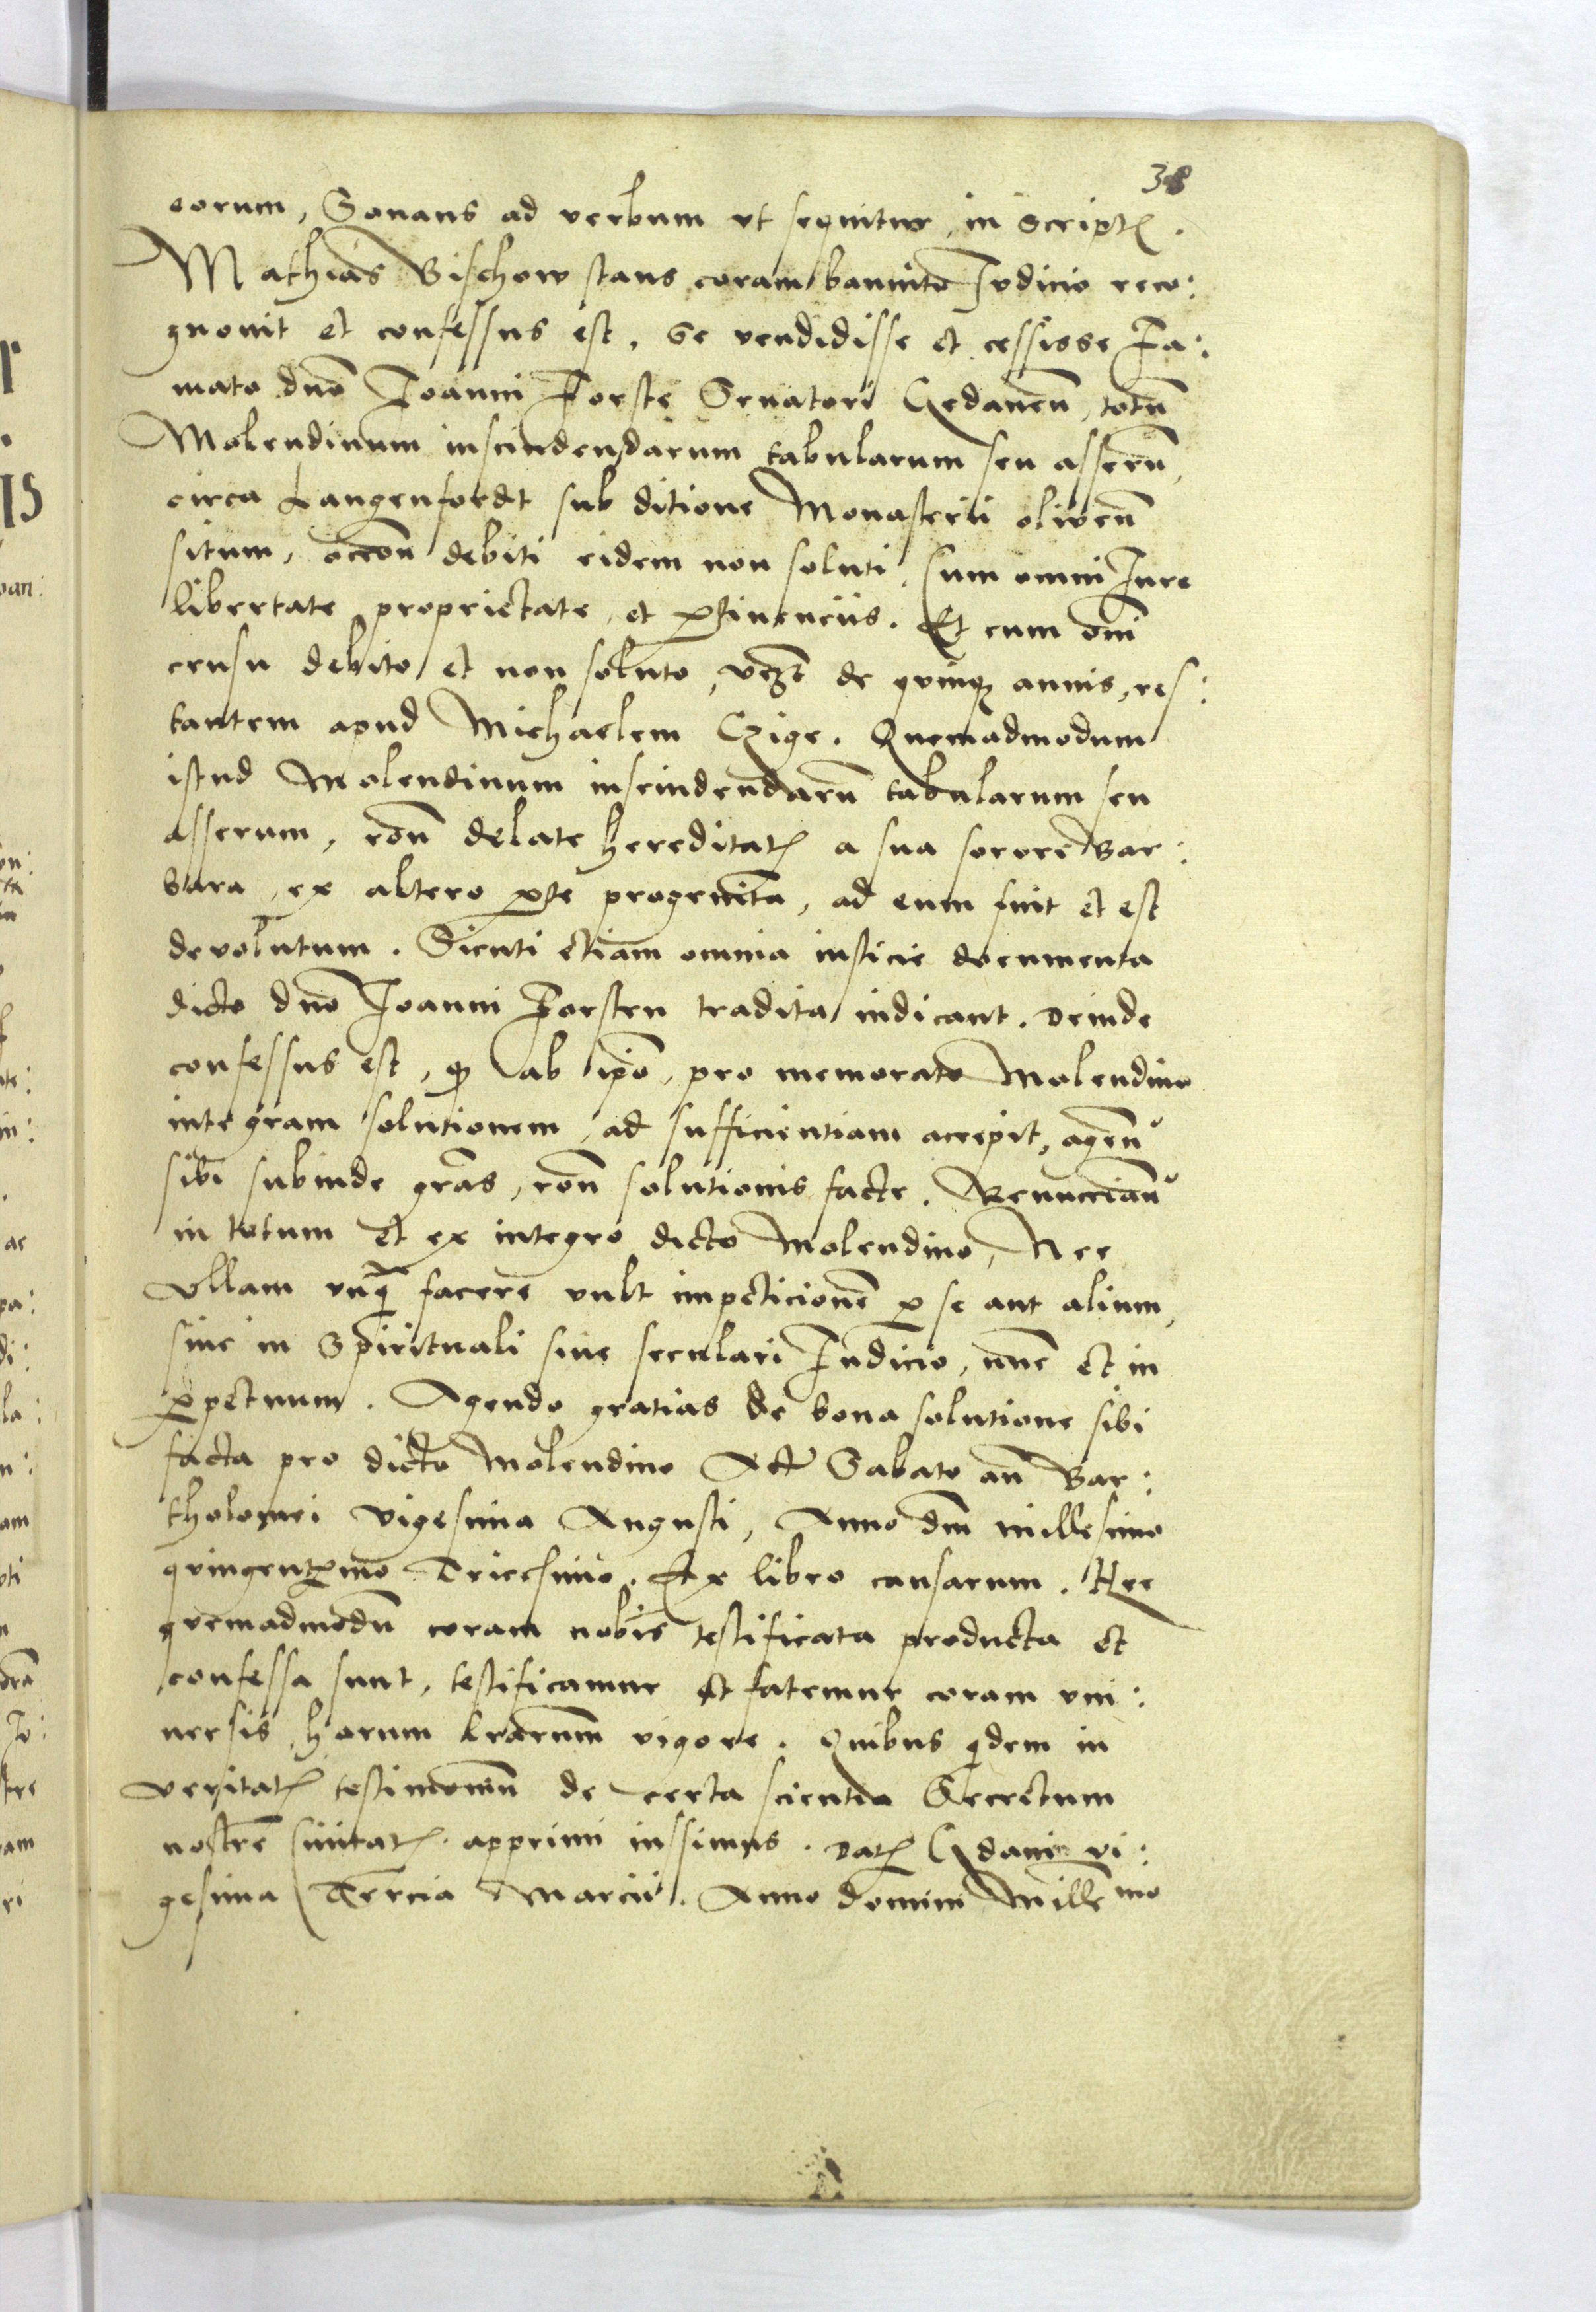 38
eorum, Sonans ad verbum vt sequitur, in Script(is).
Mathias Bischow stans coram bannito Iudicio reco:
gnouit et confessus est, se vendidisse et cessisse Fa:
mato dno Ioanni Forste Senatori Gedanen̄, totū
Molendinum inscindendarum tabularum seu asserū,
circa Langenfordt sub ditione Monasterii oliuen̄
situm, occon̄ debiti eidem non soluti, Cum omni Iure
libertate proprietate, et ꝑtinenciis. Et cum om̄i
censu debito et non soluto, vꝫt de quinqꝫ annis, res:
tantem apud Michaelem Czige. Quemadmodum
istud Molendinum inscindendarū tabularum seu
asserum, ron̄ delate hereditat(is) a sua sorore Bar:
bara, ex altero ꝑte progenita, ad eum fuit et est
deuolutum. Sicuti etiam omnia iusticie documenta
dicto dno Ioanni Forsten tradita indicant. Deinde
confessus est, qꝫ ab ipo, pro memorato Molendino
integram solutionem, ad sufficientiam accepit, agen̄
sibi subinde gras, ron̄ solutionis facte. Renuncian̄
in totum et ex integro dicto Molendino, Nec
Vllam vnq̄ facere vult impeticionē ꝑ se aut alium,
siue in Spirituali siue seculari Iudicio, nūc et in
ꝑpetuum. Agendo gratias de bona solutione sibi
facta pro dicto Molendino Act(um) Sabato an̄ Bar:
tholomei vigesima Augusti, Anno dni millesimo
quingentesimo Tricesimo. Ex libro causarum. Hec
quemadmodū coram nobis testificata producta et
confessa sunt, testificamur et fatemur coram vni:
uersis, harum lrarum vigore. Quibus qdem in
veritat(is) testimoniū de certa scientia Secretum
nostre Ciuitat(is) apprimi iussimus. Dat(um) Gedani vi:
gesima Tercia Marcii. Anno domini Mille mo